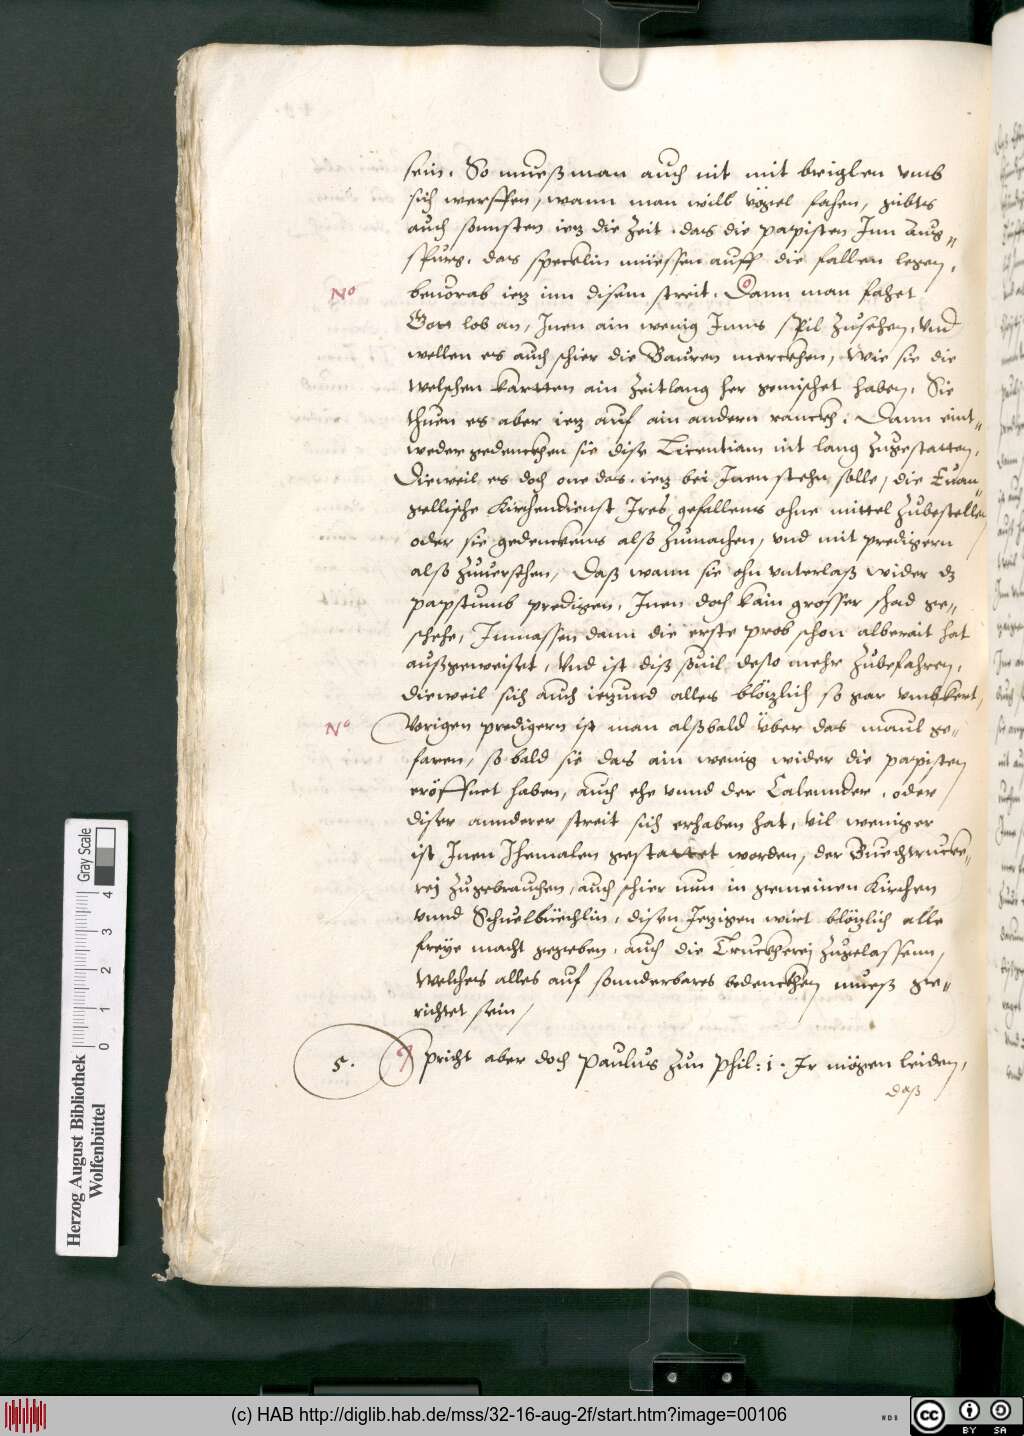 sein. So mueß man auch nit mit briglen vmb
sich werffen, wann man will vögel fahen, gibts
auch sonnsten iez die Zeit, das die papisten Inn Aug=
spurg, das specklin müessen auff die fallen legen,
N°
beuorab iez inn disem streit. Dann man fahet
Gott lob an, Inen ain wenig Inns spil Zusehen, Vnd
wellen es auch schier die Bauren merckhen, Wie sie die
welschen kartten ain Zeitlang her gemischet haben. Sie
thuen es aber iez auf ain andern ranckh. Dann eint=
weder gedenckhen sie dise Licentiam nit lang Zugestatten,
Dieweil es doch one das iez bei Inen stehn solle, die Euan=
gellische Kirchendienst Ires gefallenns ohne mittel Zubestellen
oder sie gedenckens also Zumachen, vnd mit predigern
also Zuuersehen, Daß wann sie ohn vnterlaß wider dz
papstumb predigen, Inen doch kain grosser schad ge=
schehe, Inmassen dann die erste prob schon alberait hat
außgeweiset, Vnd ist diß souil desto mehr Zubefahren,
dieweil sich auch iezund alles blözlich so gar vmbkert,
N°
Vorigen predigern ist man alßbald über das maul ge=
faren, so bald sie das ain wenig wider die papisten
eröffnet haben, auch ehe vnnd der Calennder, oder
diser annderer streit sich erhaben hat, vil weniger
ist Inen Jhemalen gestattet worden, der Buechtrucke=
rej Zugebrauchen, auch schier nun in gemeinen Kirchen
vnnd Schuelbüechlin, disen Jezigen wirt blözlich alle
freye macht gegeben, auch die Truckherei Zugelassenn,
Welches alles auf sonnderbares bedenckhen mueß ge=
richtet sein,
5.
Spricht aber doch Paulus Zun Phil: 1. Ir mögen leiden,
daß
Herzog August Bibliothek
Wolfenbüttel
0 1 2 3 4
Gray Scale
(c) HAB http://diglib.hab.de/mss/32-16-aug-2f/start.htm?image=00106
WDB
cc
BY SA